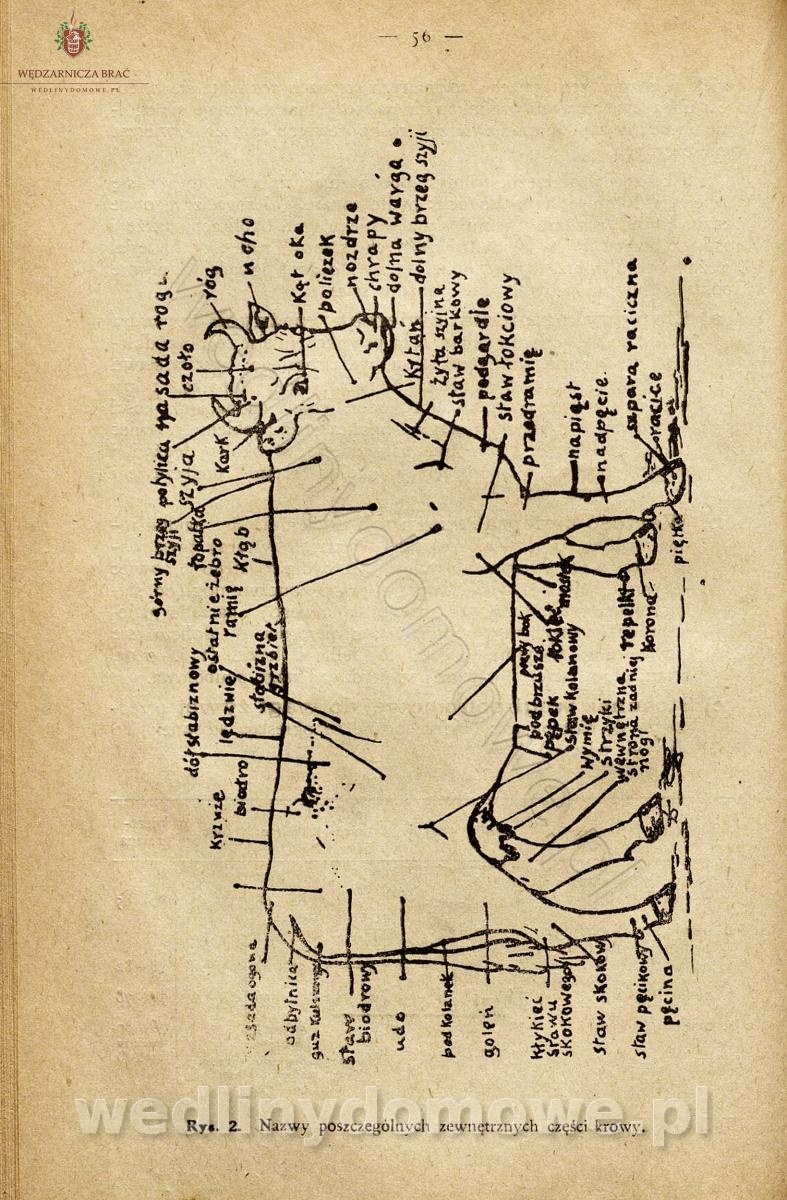 — 56 —
WĘDZARNICZA BRAĆ
WEDLINYDOMOWE.PL
górny brzeg
szyji
potylica
nasada rogu
czoło
róg
ucho
kąt oka
policzek
nozdrze
chrapy
dolna warga
dolny brzeg szyji
szyja
kark
łopatka
kłąb
ostatnie żebro
ramię
słabizna
grzbiet
dół słabiznowy
lędźwie
biodro
krzyże
krtań
żyła szyjna
staw barkowy
podgardle
staw łokciowy
przedramię
napiąst
nadpęcie
szpara raciczna
racice
piętka
prawy bok
podbrzusze
pępek
łokieć
mostek
staw kolanowy
wymię
strzyki
wewnętrzna
strona zadniej
nogi
rapetki
korona
nasada ogona
odbytnica
guz kulszowy
staw
biodrowy
udo
podkolanek
goleń
kłykieć
stawu
skokowego
staw skokowy
staw pęcikowy
pęcina
Rys. 2. Nazwy poszczególnych zewnętrznych części krowy.
wedlinydomowe.pl
wedlinydomowe.pl